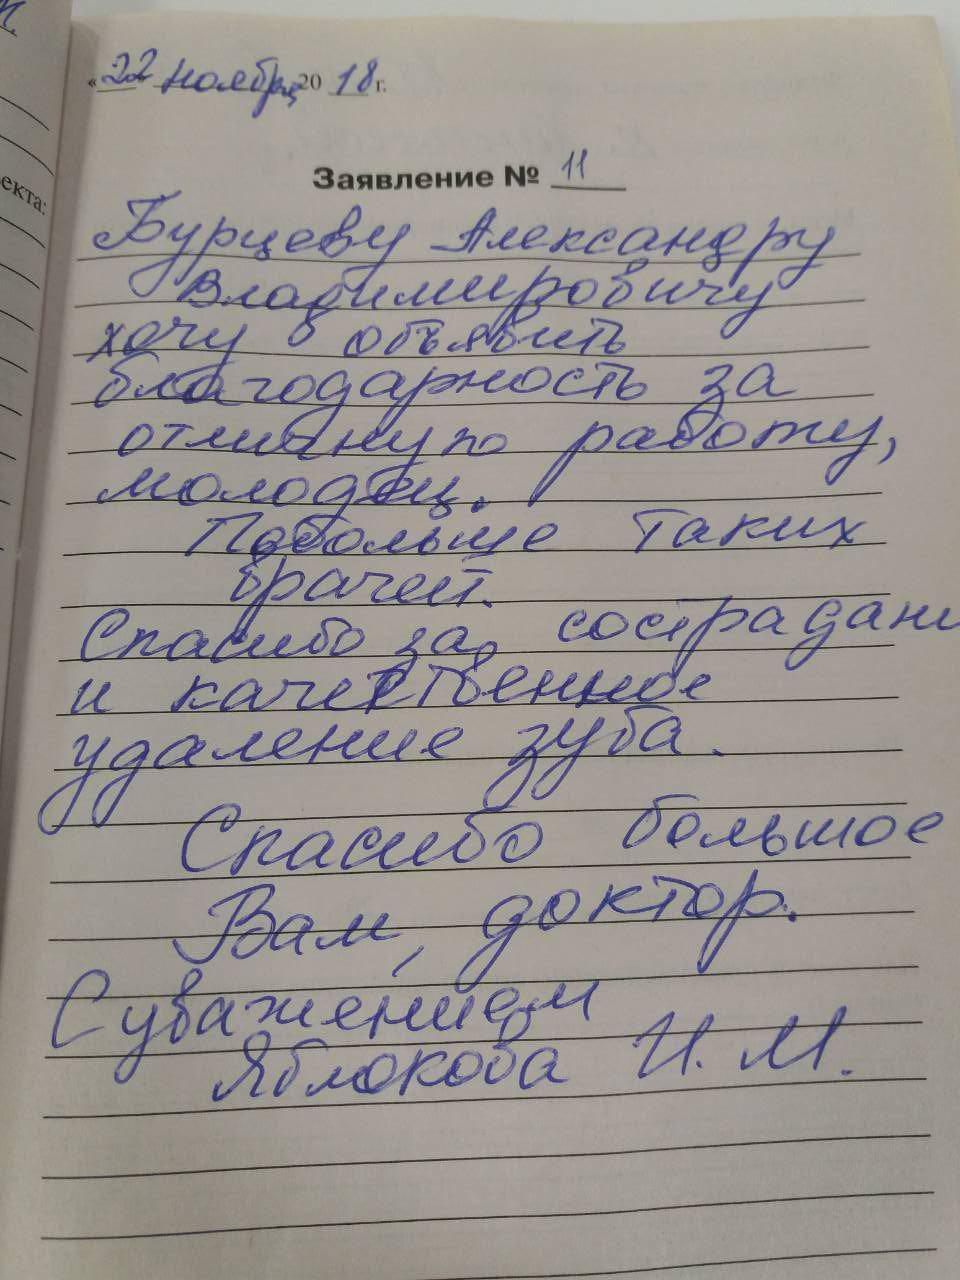 «22» ноября 2018 г.
Заявление № 11
екта:
Бурцеву Александру
Владимировичу
хочу объявить
благодарность за
отличную работу,
молодец.
Побольше таких
врачей.
Спасибо за сострадани
и качественное
удаление зуба.
Спасибо большое
Вам, доктор.
С уважением
Яблокова И. М.